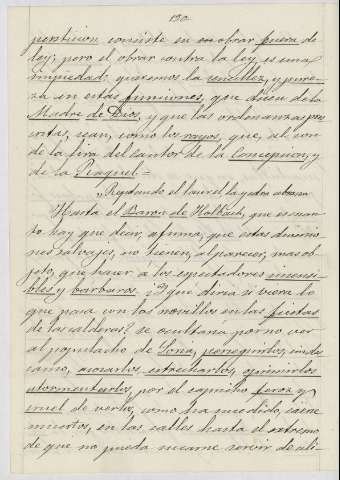 130
perstición consiste en obrar fuera de
ley; pero el obrar contra la ley, es una
impiedad: queremos la sencillez, y pure-
za en estas funciones, que dicen de la
Madre de Dios, y que las ordenanzas
sean, como los rayos, que, al son
de la lira del cantor de la Concepcion, y
de la Raquel=
"Respetando el laurel la yedra abrasa
Hasta el Baron de Holbach, que es cuan-
to hay que decir, afirma, que estas diversio-
nes salvajes, no tienen, al parecer, mas ob-
jeto, que hacer a los espectadores insensi-
bles y barbaros. ¿Y que diria si viera lo
que pasa con los novillos en las fiestas
de las calderas? se ocultaria por no ver
al populacho de Soria, perseguirlos,
acosarlos, estrecharlos, oprimirlos
atormentarlos, por el capricho feroz y
cruel de verlos, como ha sucedido, caerse
muertos, en las calles hasta el extremo
de que no pueda su carne servir de ali-